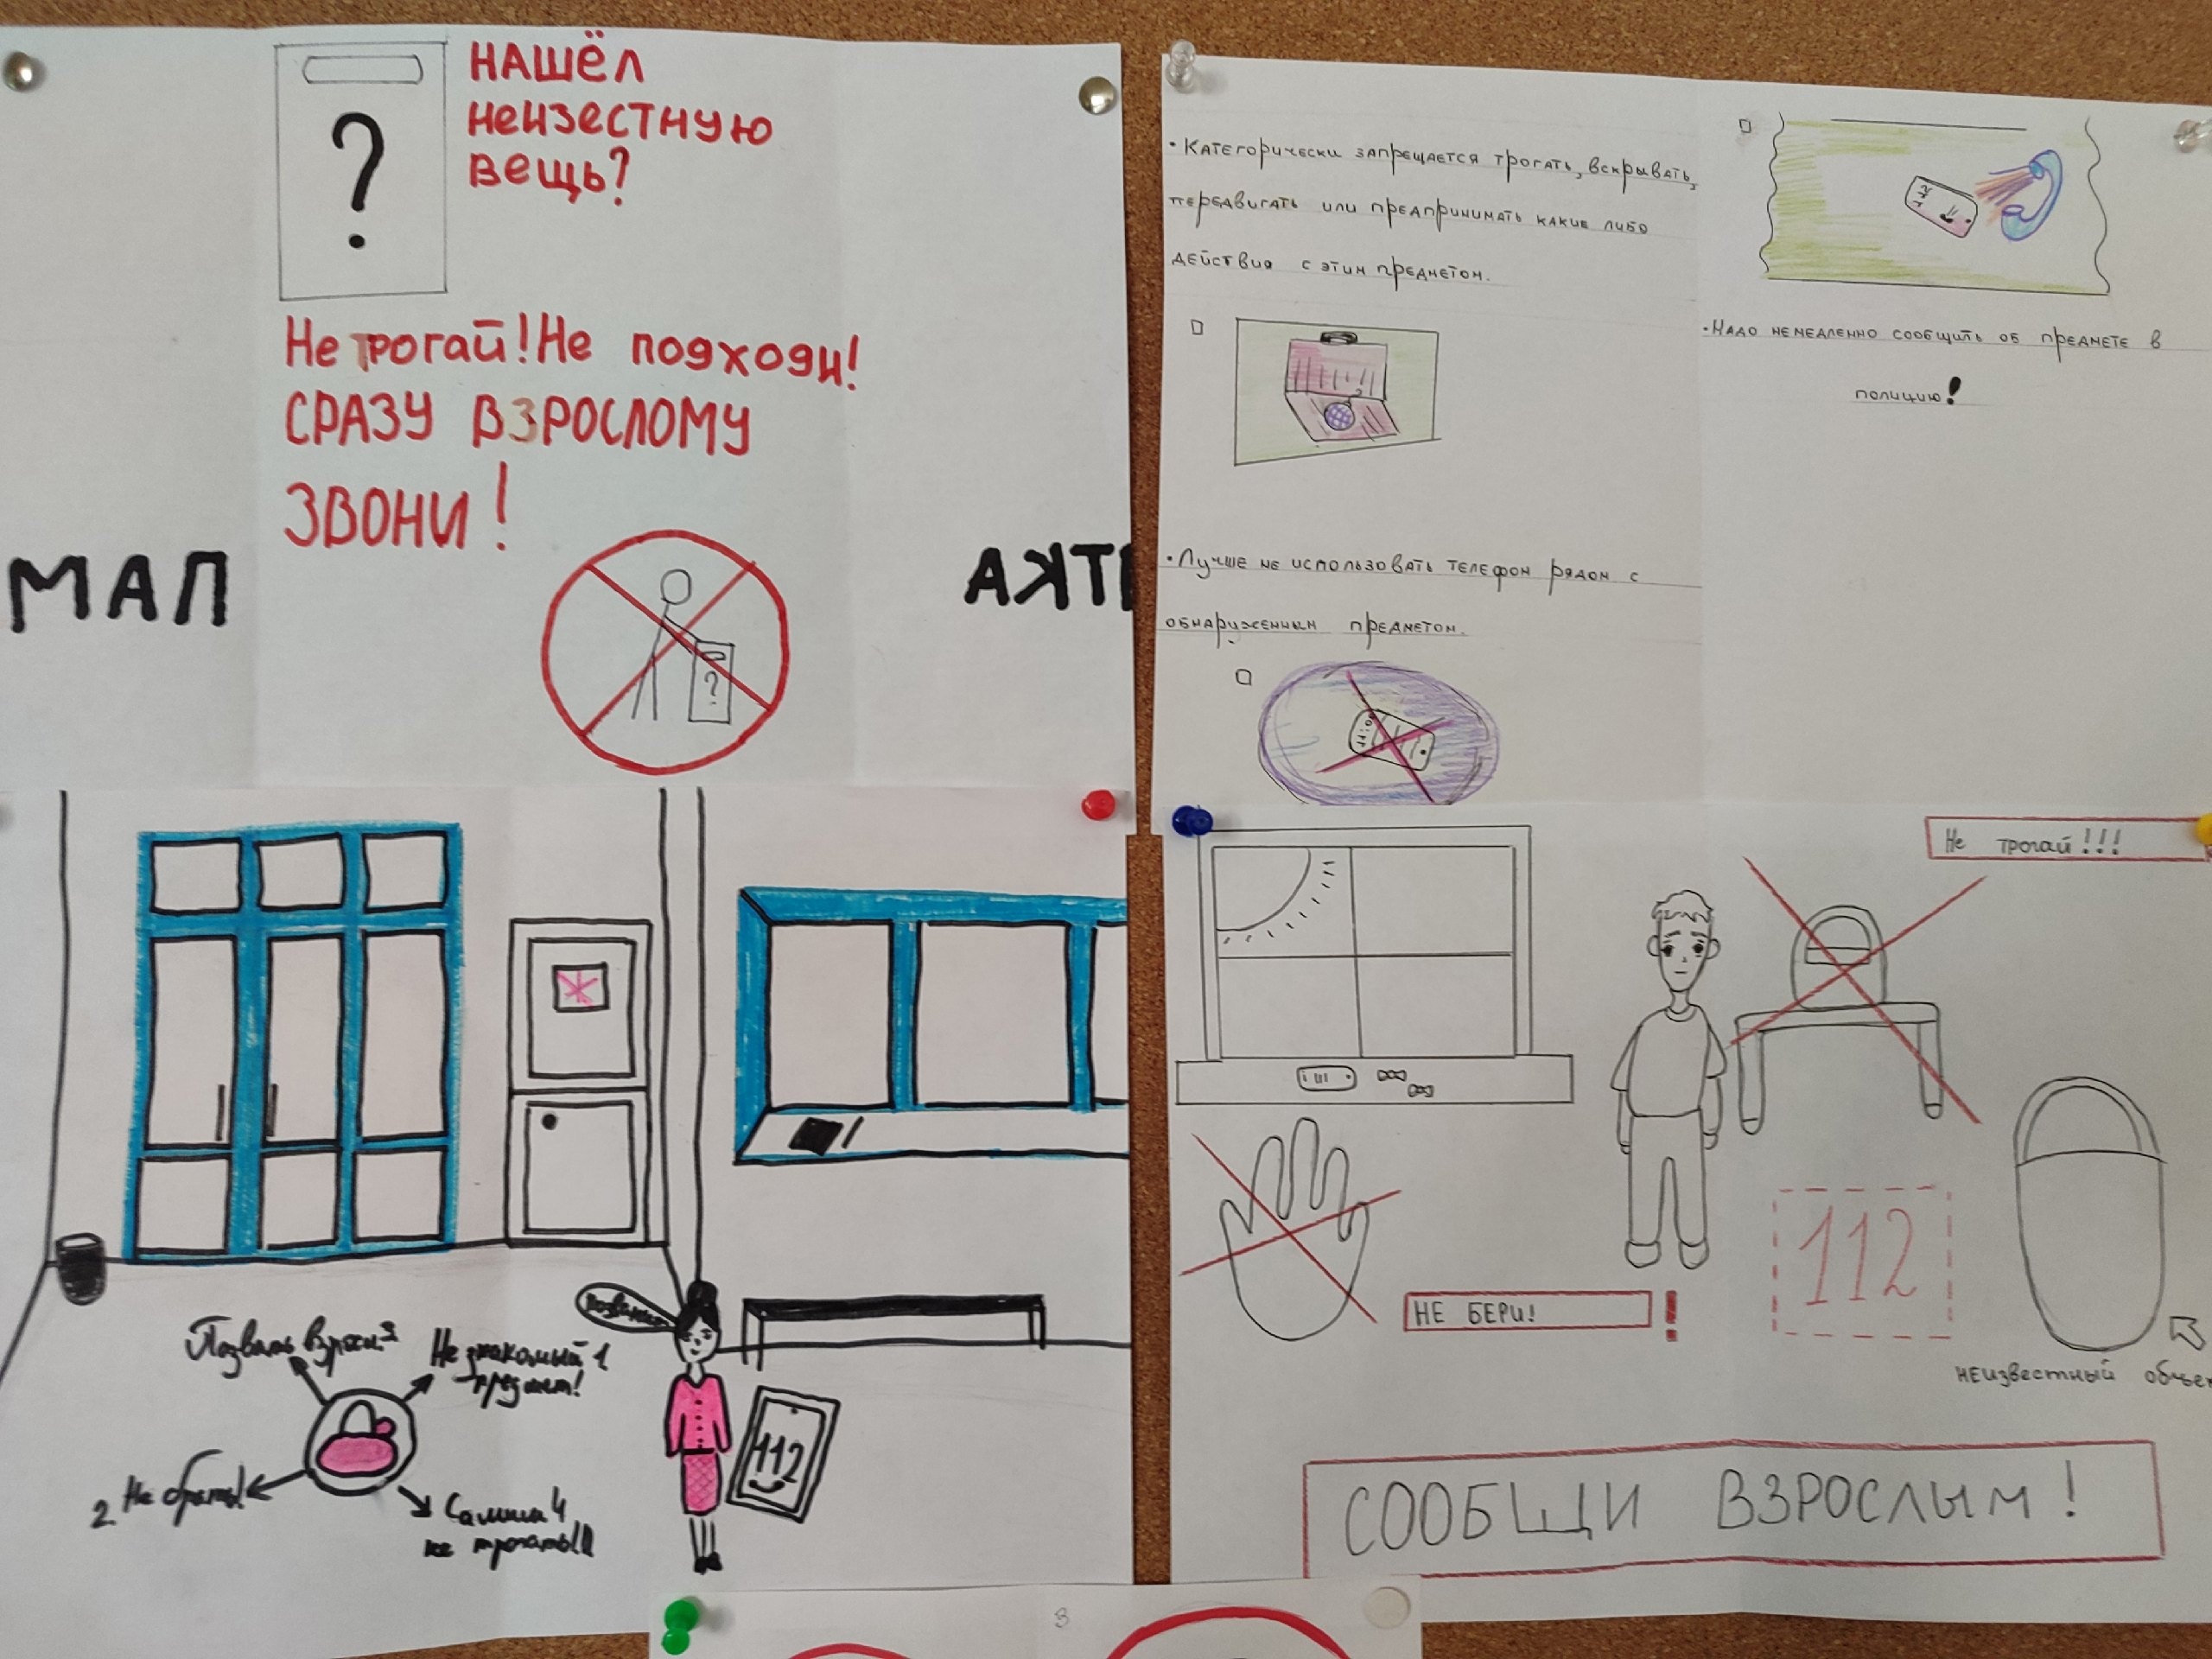 ?
НАШЁЛ
неизестную
вещь?
Не трогай! Не подходи!
СРАЗУ ВЗРОСЛОМУ
ЗВОНИ!
МАП
АКТ
?
• Категорически запрещается трогать, вскрывать,
передвигать или предпринимать какие либо
действия с этим предметом.
• Лучше не использовать телефон рядом с
обнаруженным предметом.
• Надо немедленно сообщить об предмете в
полицию!
Позвать взросл 3
Не знакомый 1
предмет!
2 Не брать!
Самим 4
не трогать!!!
112
Не трогай!!!
НЕ БЕРИ!
!
112
неизвестный объек
СООБЩИ ВЗРОСЛЫМ!
3